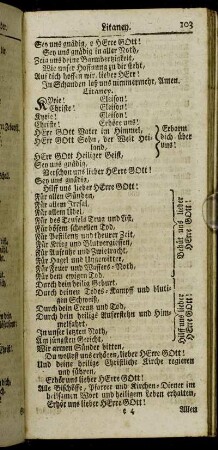 Litaney. 103
Sey uns gnädig, o HErre GOtt!
Sey uns gnädig in aller Noth,
Zeig uns deine Barmhertzigkeit,
Wie unser Hoffnung zu dir steht,
Auf dich hoffen wir, lieber HErr!
In Schanden laß uns nimmermehr, Amen.
Litaney.
Kyrie! Eleison!
Christe! Eleison!
Kyrie! Eleison!
Christe! Erhöre uns!
HErr GOtt Vater im Himmel,
HErr GOtt Sohn, der Welt Heiland,
HErr GOtt Heiliger Geist,
Erbarm dich über uns!
Sey uns gnädig,
Verschon uns lieber HErre GOtt!
Sey uns gnädig,
Hilff uns lieber HErre GOtt!
Für allen Sünden,
Für allem Irrsal,
Für allem Ubel,
Für des Teufels Trug und List,
Für bösem schnellen Tod,
Für Pestilentz und theurer Zeit,
Für Krieg und Blutvergiessen,
Für Aufruhr und Zwietracht,
Für Hagel und Ungewitter,
Für Feuer und Wassers-Noth,
Für dem ewigen Tod,
Behüt uns lieber HErre GOtt!
Durch dein heilig Geburt,
Durch deinen Todes-Kampff und blutigen Schweiß,
Durch dein Creutz und Tod,
Durch dein heilige Auferstehn und Himmelfahrt,
In unser letzten Noth,
Am jüngsten Gericht,
Hilff uns lieber HErre GOtt!
Wir armen Sünder bitten,
Du wollest uns erhören, lieber HErre GOtt!
Und deine heilige Christliche Kirche regieren
und führen,
Erhör uns lieber HErre GOtt!
Alle Bischöffe, Pfarrer und Kirchen-Diener im
heilsamen Wort und heiligem Leben erhalten,
Erhör uns lieber HErre GOtt!
e 4 Allen